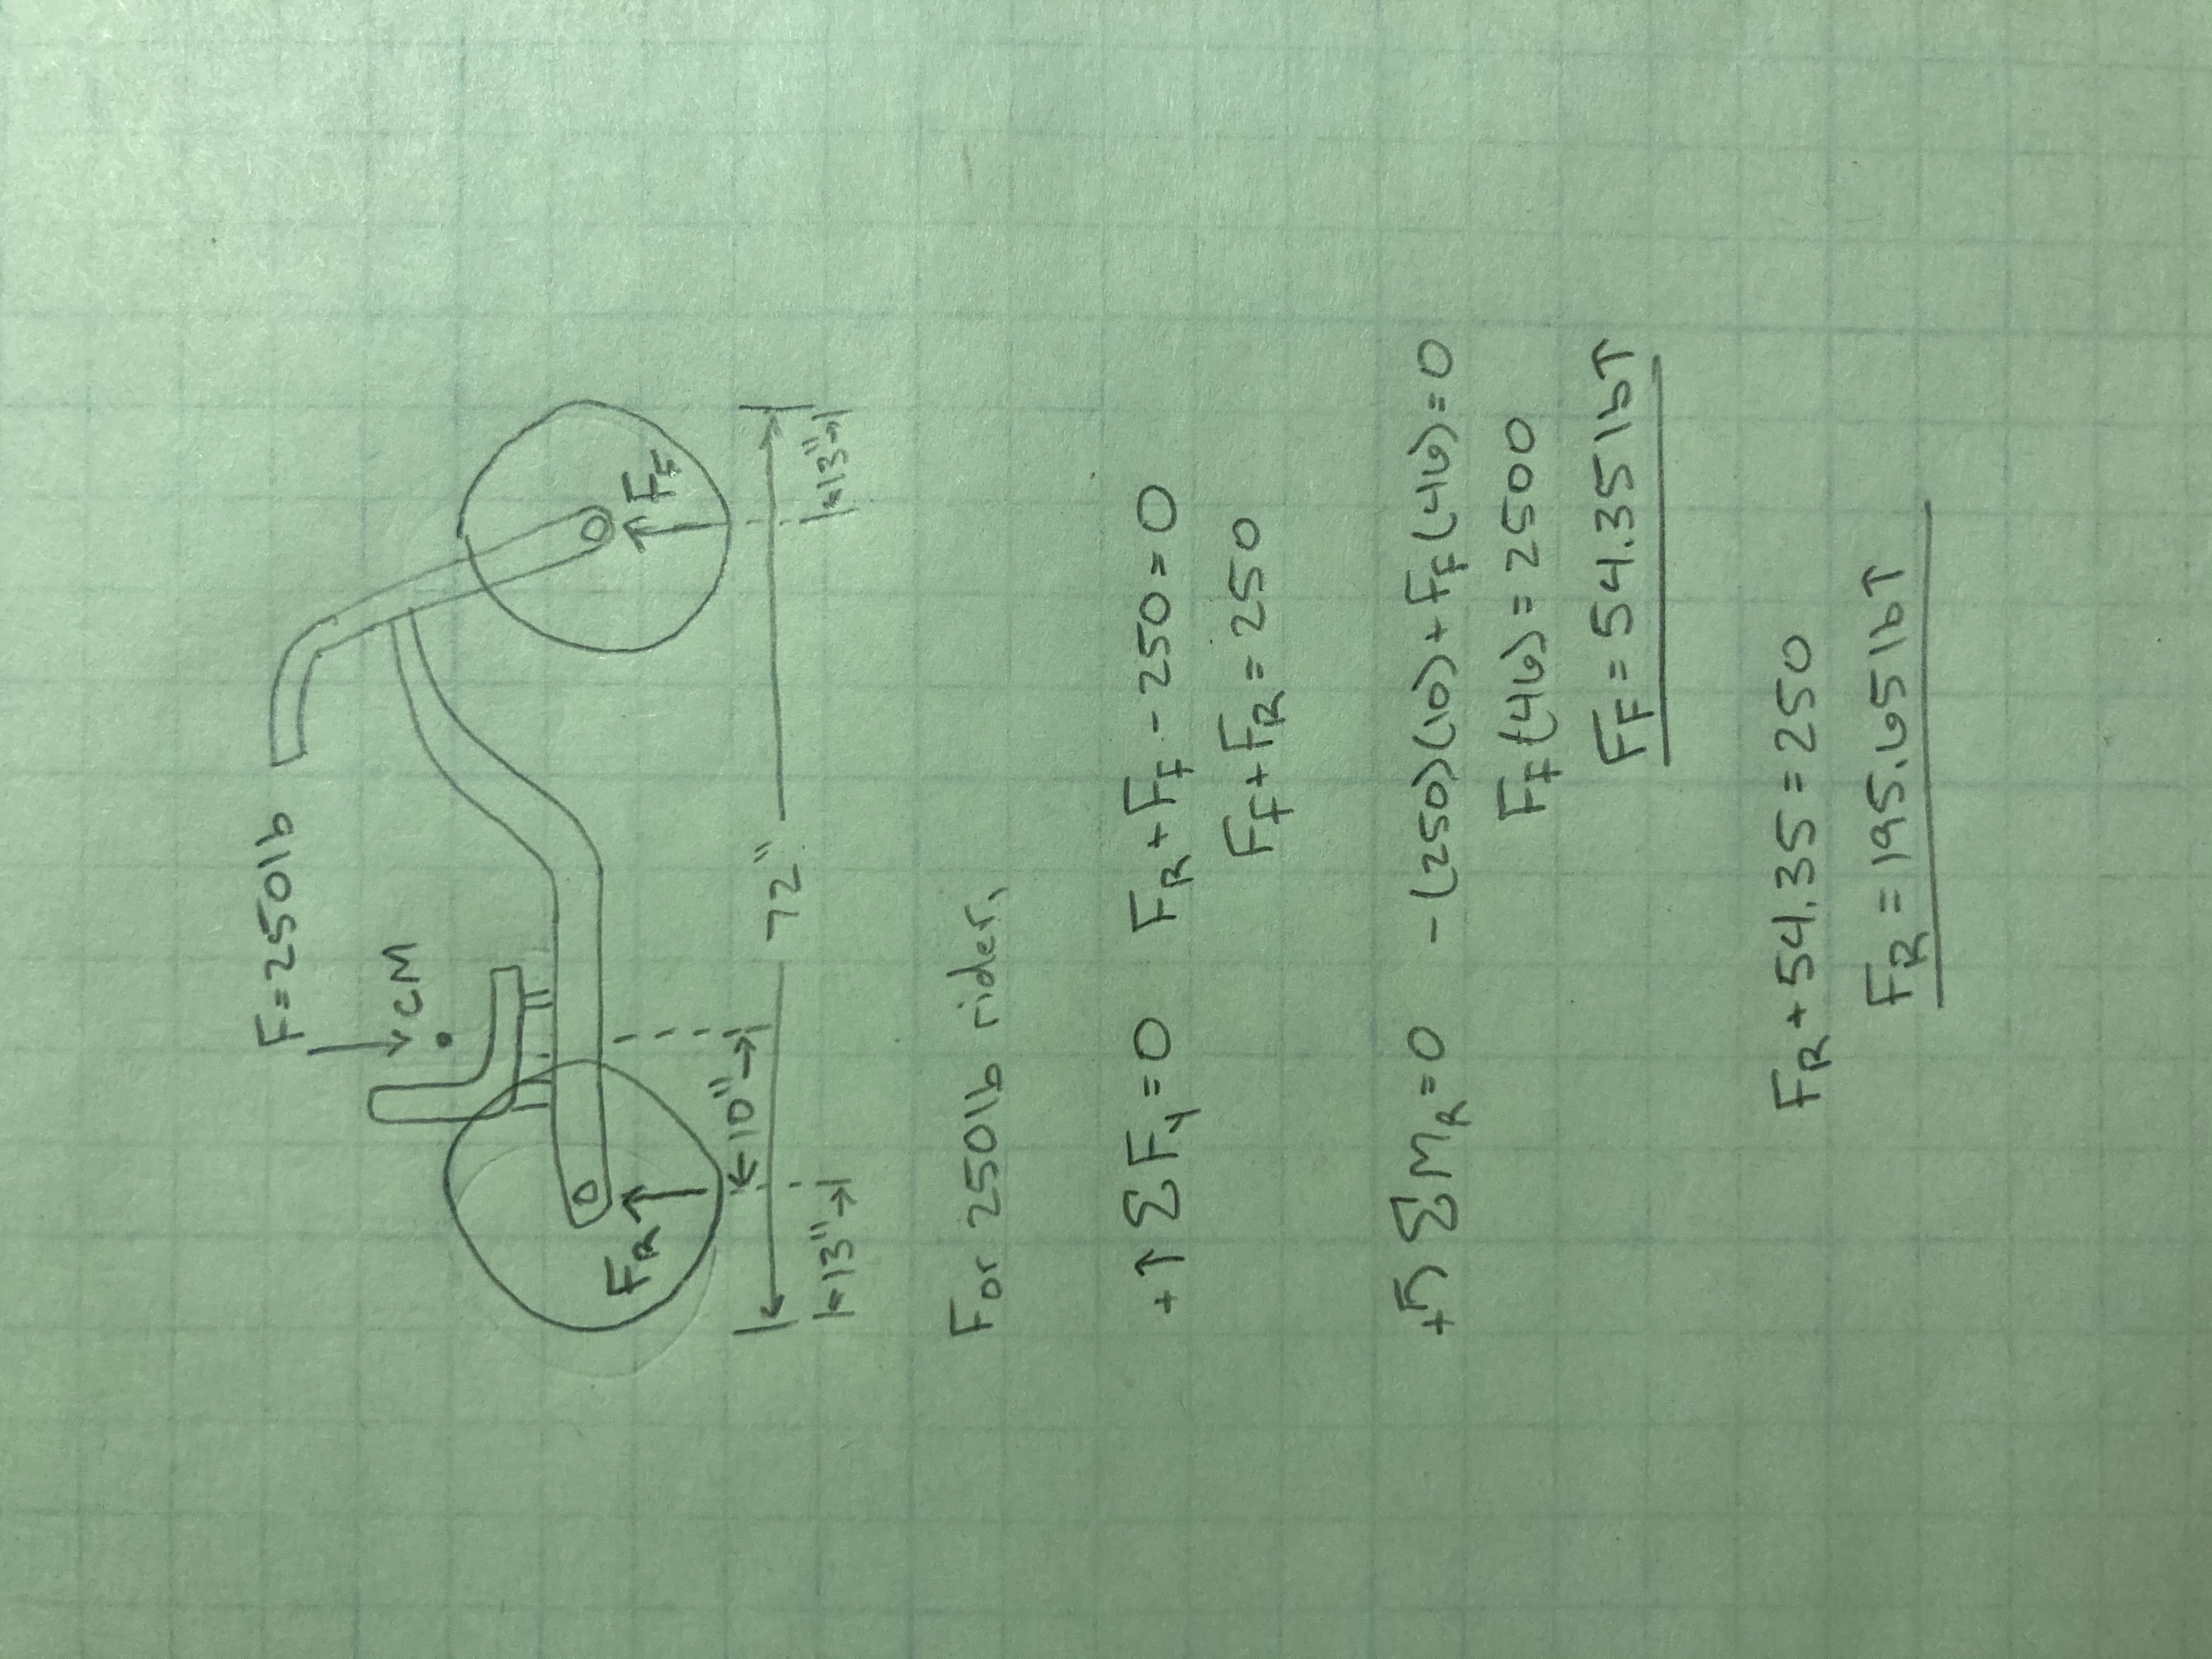 F=250lb
CM
F_R
F_F
10"
72"
13"
13"
For 250lb rider,
+↑ ΣF_y=0 F_R+F_F-250=0
F_F+F_R=250
+↺ ΣM_R=0 -(250)(10)+F_F(46)=0
F_F(46)=2500
F_F=54.35lb↑
F_R+54.35=250
F_R=195.65lb↑